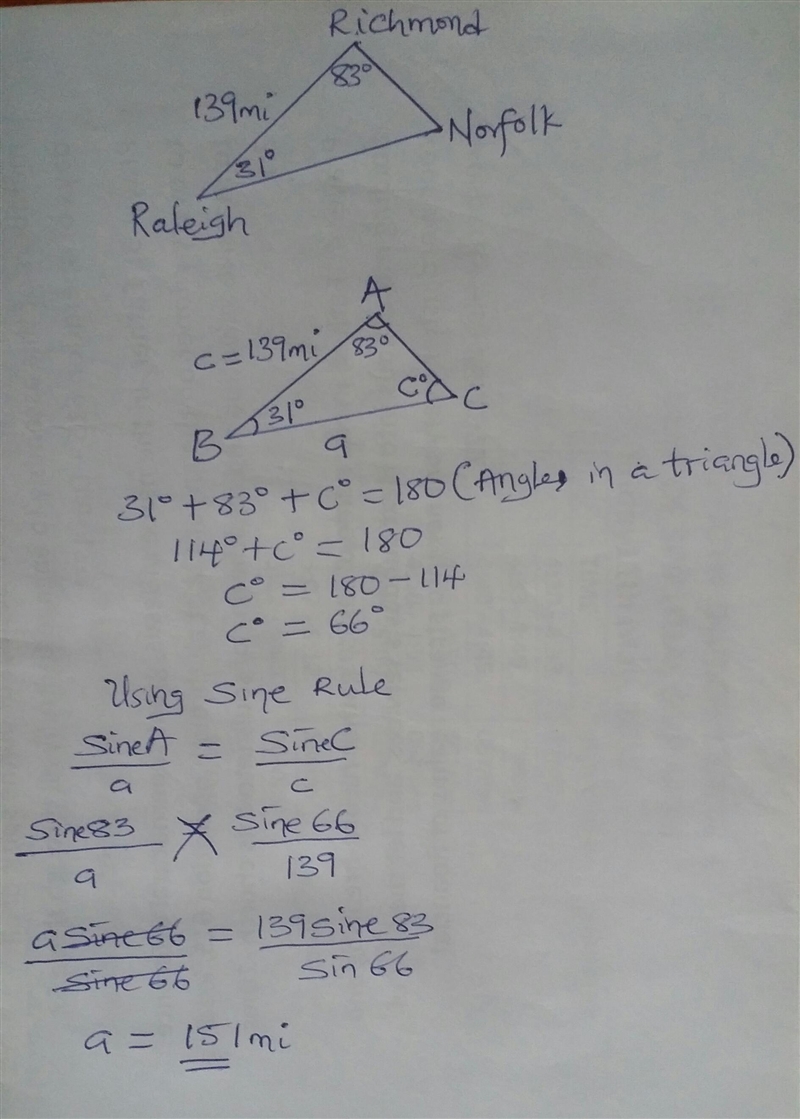 Richmond
83°
139mi
Norfolk
31°
Raleigh
A
c=139mi
83°
C°
C
31°
B
a
31°+83°+C°=180 (Angles in a triangle)
114°+C°=180
C°=180-114
C°=66°
Using Sine Rule
SineA/a = SineC/c
Sine83/a = Sine66/139
aSine66/Sine66 = 139Sine83/Sin66
a = 151mi